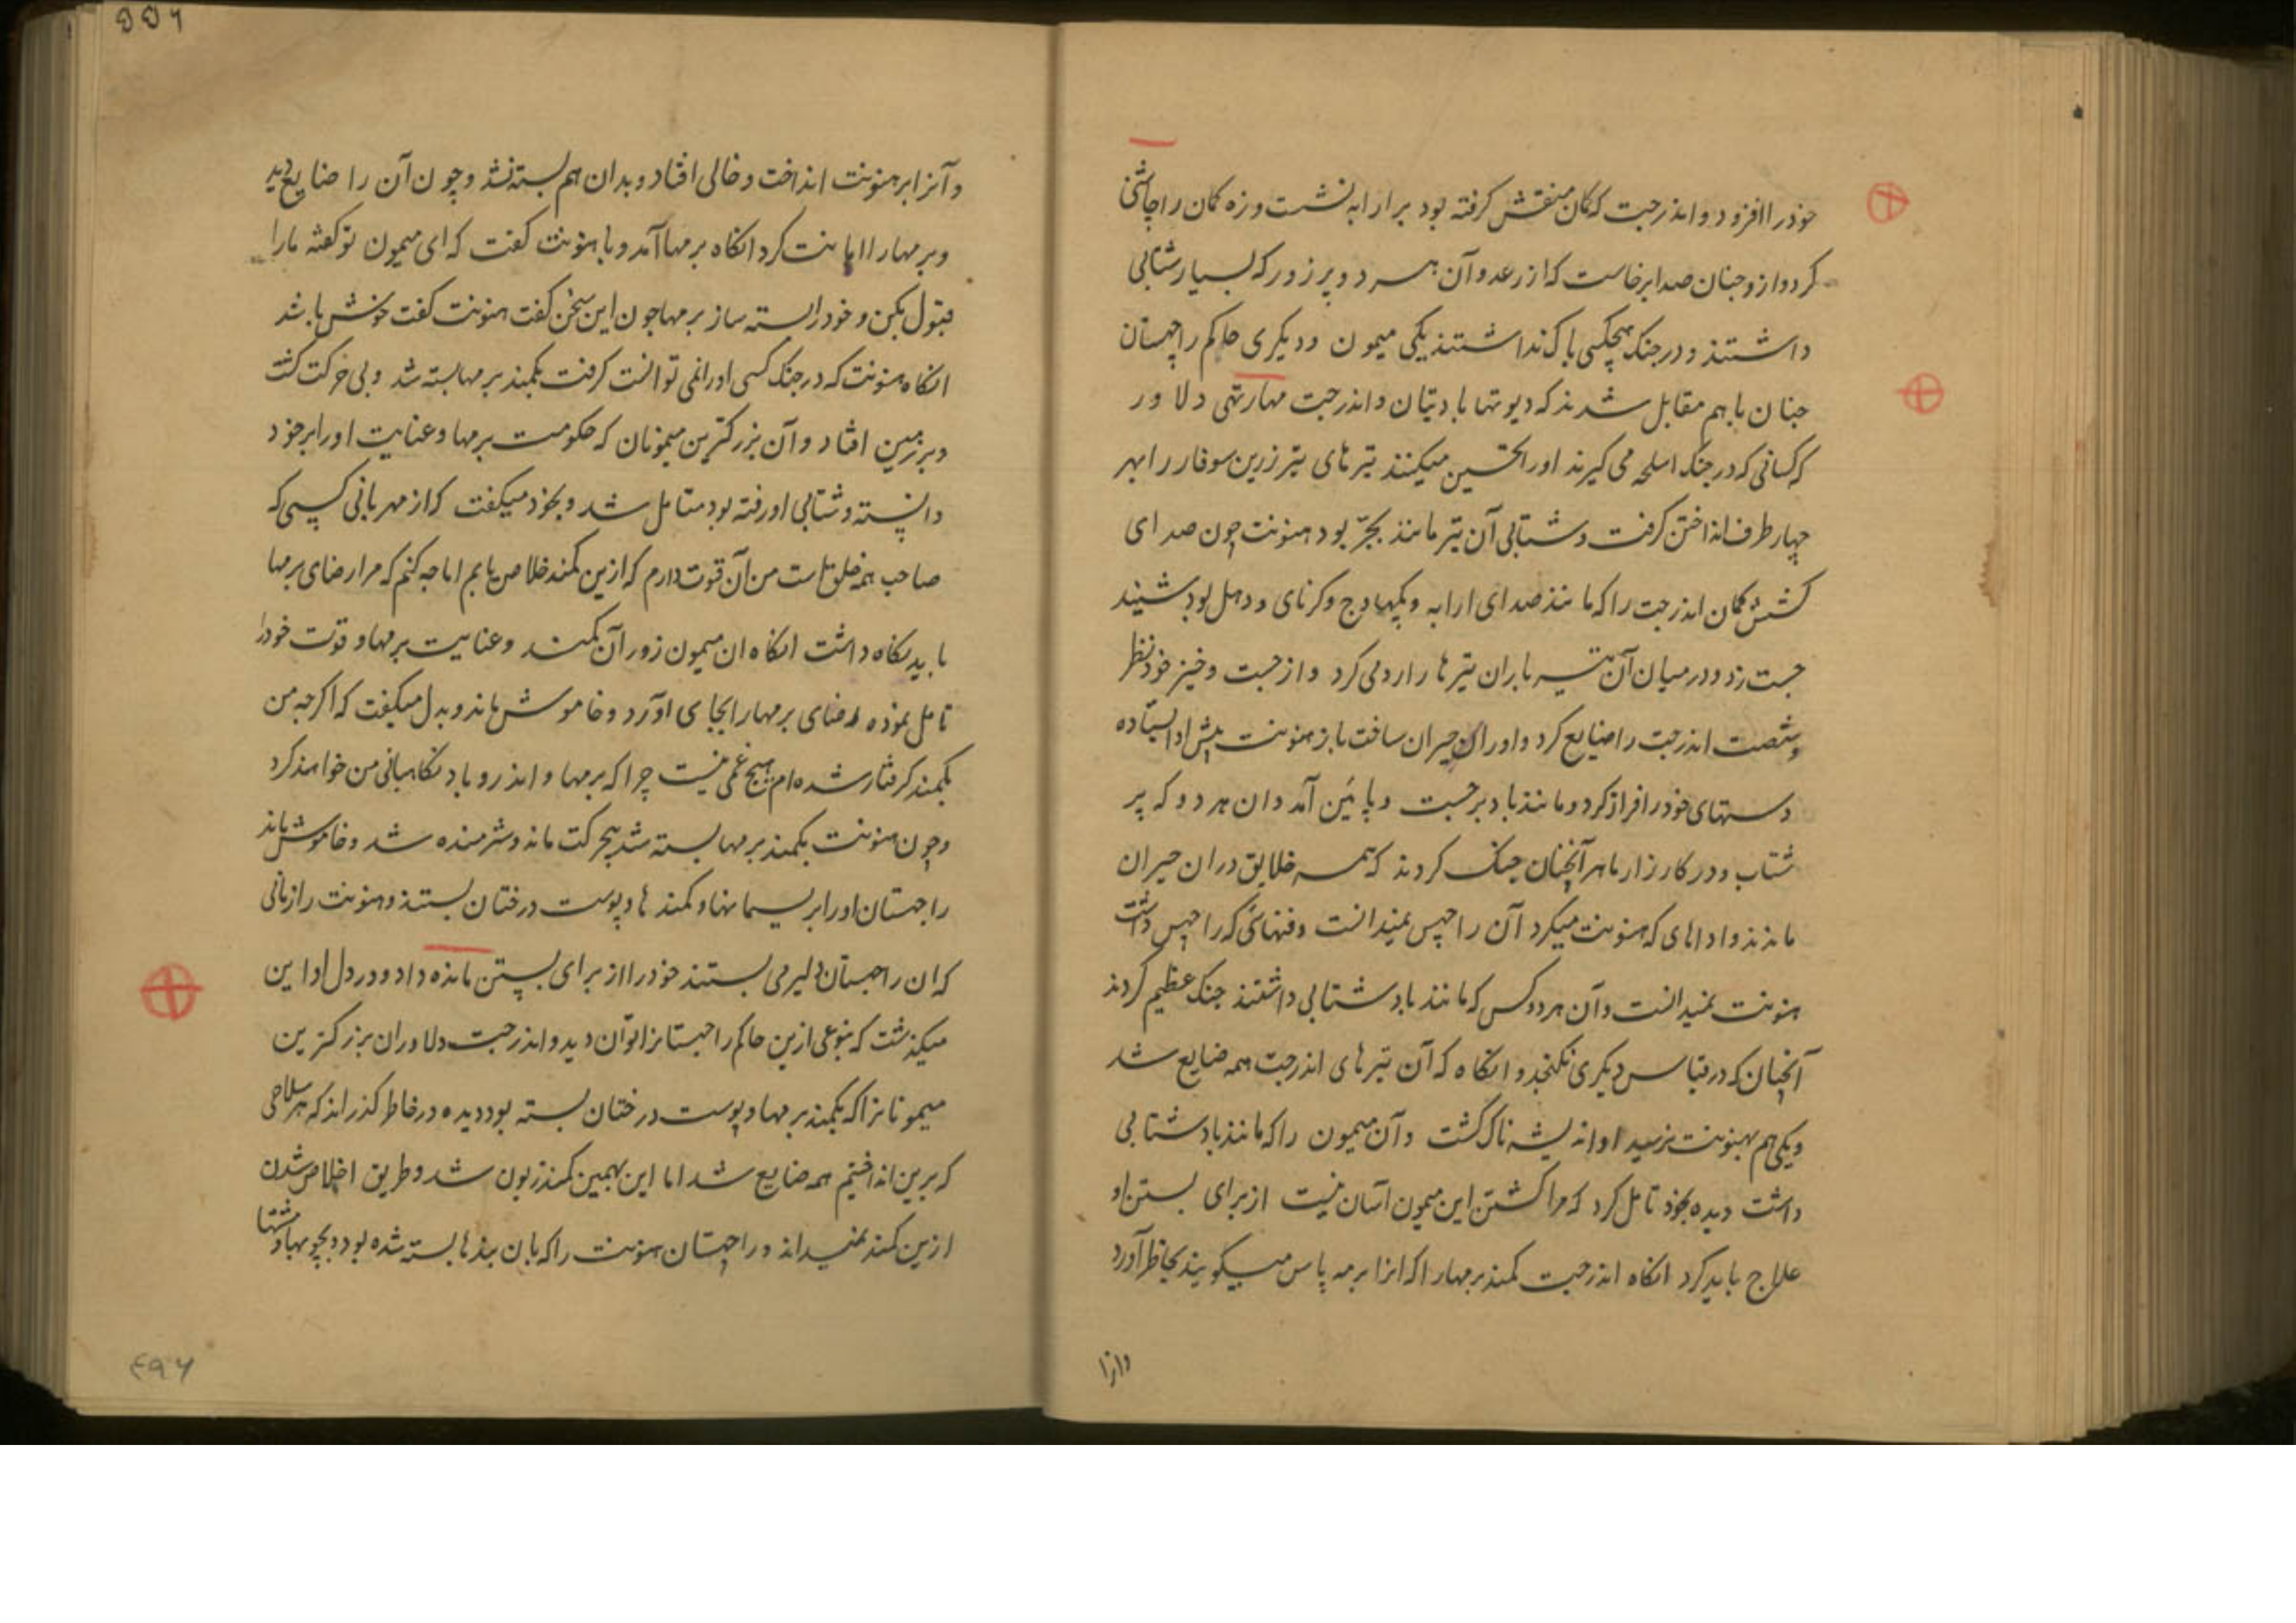 خودرا افزود و اندرجت که کمان منقش گرفته بود برارابه نشست و زه کمان را چاشنی
کرد و ازو چنان صدا برخاست که از رعد و آن هر دو پر زور که بسیار شتابی
داشتند و در جنک هیچکسی باک نداشتند یکی میمون و دیکری حاکم راچهستان
چنان باهم مقابل شدند که دیوتها با دیتان و اندرجت مهارتهی دلاور
که کسانی که در جنک اسلحه می کیرند اورا تحسین میکنند تیرهای تیز زرین سوفار را بهر
چهار طرف انداختن کرفت و شتابی آن تیر مانند بجر بود هنونت چون صدای
کشش کمان اندرجت را که مانند صدای ارابه و پکهاوج و کرنای و دهل بود شنید
جست زد و در میان آن تیر باران تیرها را رد می کرد و از جست و خیز خود نظر
و شصت اندرجت را ضایع کرد و اورا حیران ساخت باز هنونت پیش او ایستاده
دستهای خود را افراز کرد و مانند باد برجست و پائین آمد و ان هر دو که پر
شتاب و در کارزار ماهر آنچنان جنک کردند که همه خلایق دران حیران
ماندند و اداهای که هنونت میکرد آن را چهس نمیدانست و فنهائی که راچهس داشت
هنونت نمیدانست و آن هر دو کس که مانند باد شتابی داشتند جنک عظیم کردند
آنچنان که در قیاس دیکری نکنجد و انکاه که آن تیرهای اندرجت همه ضایع شد
و یکی هم بهنونت نرسید او اندیشه ناک کشت و آن میمون را که مانند باد شتابی
داشت دیده بخود تامل کرد که مرا کشتن این میمون آسان نیست از برای بستن او
علاج باید کرد انکاه اندرجت کمند برمهارا که انرا برمه پاس میکویند بخاطر آورد
وانرا
وآنرا بر هنونت انداخت و خالی افتاد و بدان هم بسته نشد و چون آن را ضایع دید
و برمهارا اهانت کرد انکاه برمها آمد و با هنونت کفت که ای میمون تو کفته مارا
قبول بکن و خودرا بسته ساز برمها چون این سخن کفت هنونت کفت خوش باشد
انکاه هنونت که در جنک کسی اورا نمی توانست کرفت بکمند برمها بسته شد و بی حرکت کشت
و بر زمین افتاد و آن بزرکترین میمونان که حکومت برمها و عنایت اورا برخود
دانسته و شتابی او رفته بود متامل شد و بخود میکفت که از مهربانی کسی که
صاحب همه خلق است من آن قوت دارم که ازین کمند خلاص یابم اما چه کنم که مرا رضای برمها
باید نکاه داشت انکاه ان میمون زور آن کمند و عنایت برمها و قوت خودرا
تامل نموده رضای برمهارا بجای آورد و خاموش ماند و بدل میکفت که اکرچه من
بکمند کرفتار شده ام هیچ غمی نیست چرا که برمها و اندر و باد نکاهبانی من خواهند کرد
و چون هنونت بکمند برمها بسته شد بیحرکت ماند و شرمنده شد و خاموش ماند
راچهستان اورا بریسمانها و کمندها و پوست درختان بستند و هنونت را زمانی
که ان راچهستان دلیر می بستند خودرا از برای بستن مانده داد و در دل او این
میکذشت که بنوعی ازین حاکم راچهستانرا توان دید و اندرجت دلاوران بزرکترین
میمونانرا که بکمند برمها و پوست درختان بسته بود دیده در خاطر کذراند که هر سلاحی
که برین انداختیم همه ضایع شد اما این بهمین کمند زبون شد و طریق خلاص شدن
ازین کمند نمیداند و راچهستان هنونت را که بان بندها بسته شده بود و بچوبها و مشتها
۴۹۶